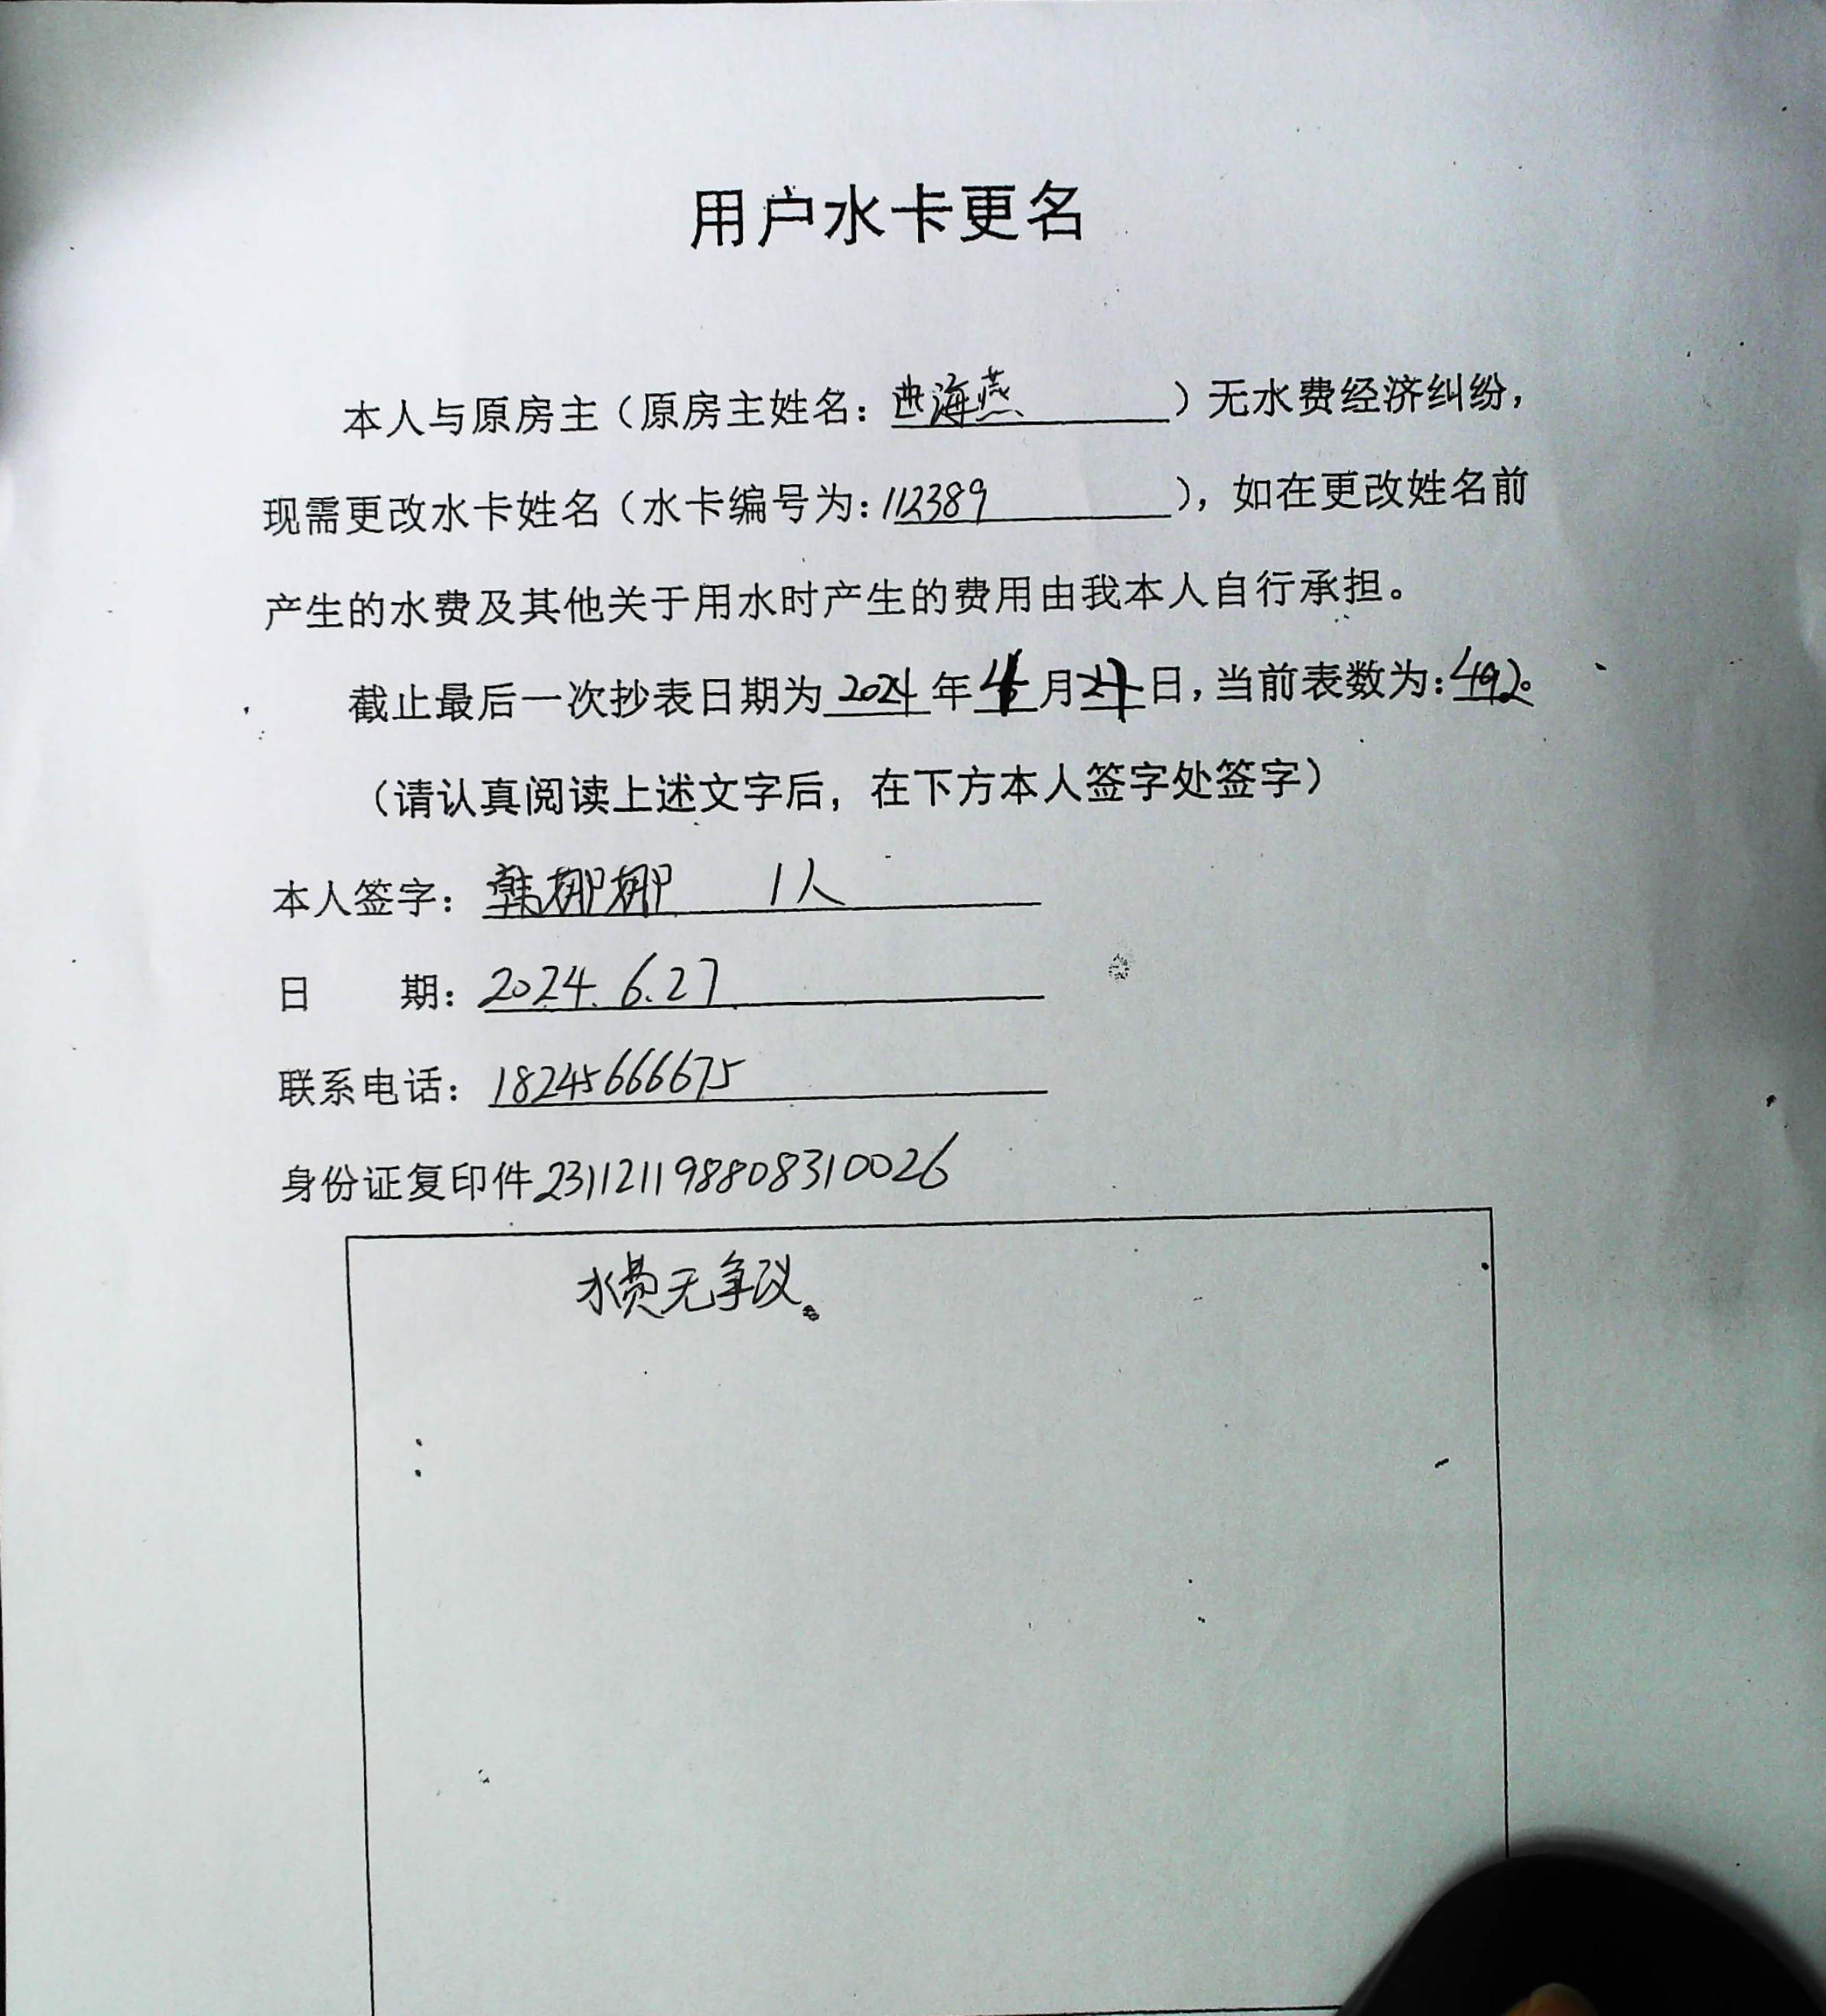 用户水卡更名
本人与原房主（原房主姓名：海燕）无水费经济纠纷，
现需更改水卡姓名（水卡编号为：112389），如在更改姓名前
产生的水费及其他关于用水时产生的费用由我本人自行承担。
截止最后一次抄表日期为2024年月日，当前表数为：492。
（请认真阅读上述文字后，在下方本人签字处签字）
本人签字：韩娜娜 1人
日 期：2024.6.27
联系电话：18245666675
身份证复印件231121198808310026
水费无争议。